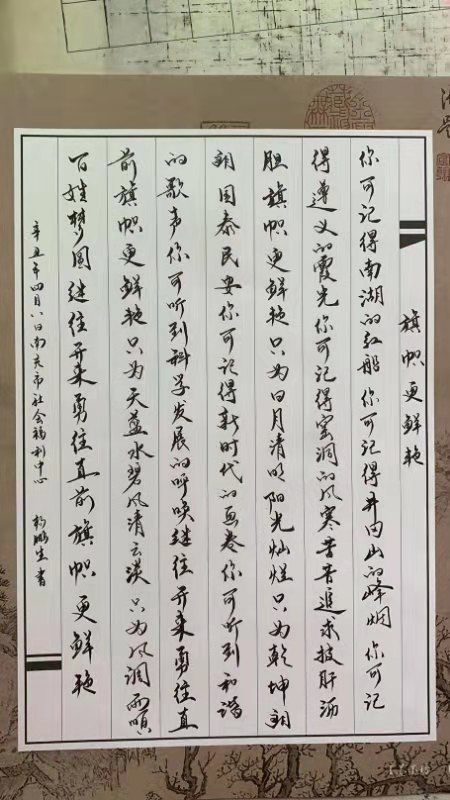 旗帜更鲜艳
你可记得南湖的红船你可记得井冈山的峰烟你可记
得遵义的霞光你可记得窑洞的风寒苦苦追求披肝沥
胆旗帜更鲜艳只为日月清明阳光灿烂只为乾坤朗
朗国泰民安你可记得新时代的画卷你可听到和谐
的歌声你可听到科学发展的呼唤继往开来勇往直
前旗帜更鲜艳只为天蓝水碧风清云淡只为风调雨顺
百姓梦圆继往开来勇往直前旗帜更鲜艳
辛丑年四月八日南充市社会福利中心 书